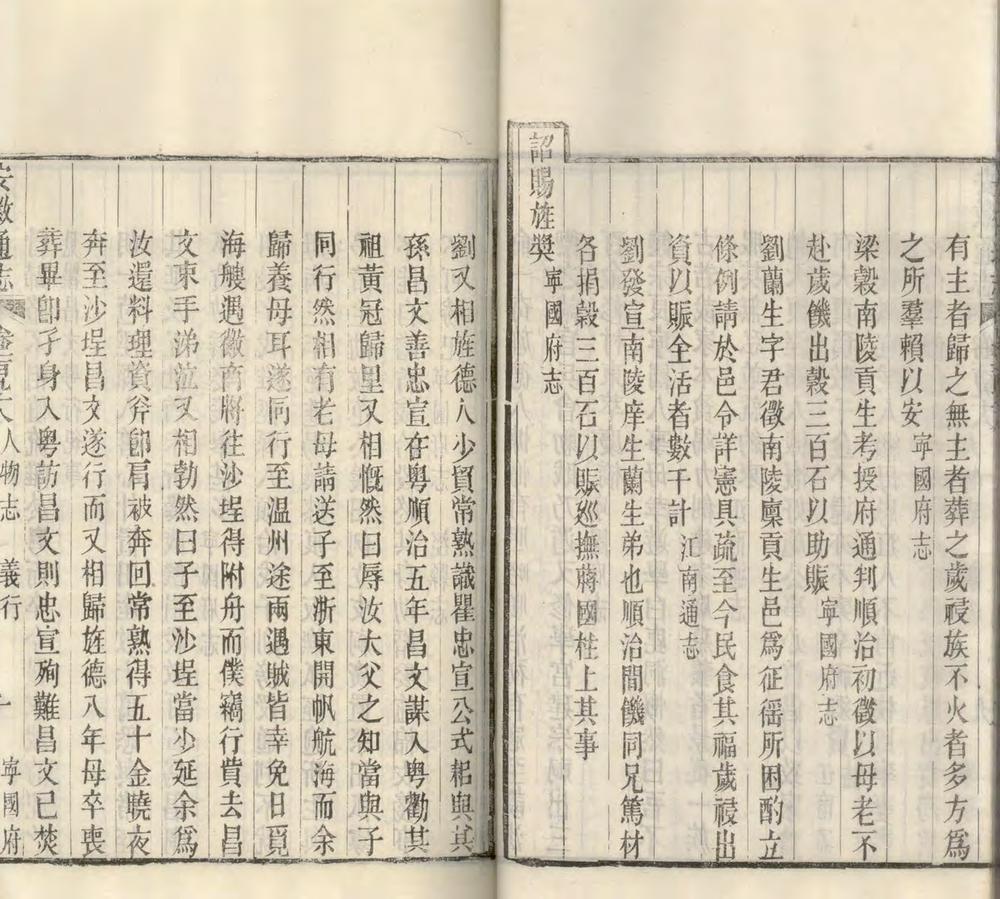 有主者歸之無主者葬之歲祲族不火者多方爲
之所羣賴以安寧國府志
梁穀南陵貢生考授府通判順治初徵以母老不
赴歲饑出穀三百石以助賑寧國府志
劉蘭生字君徵南陵廩貢生邑爲征徭所困酌立
條例請於邑令詳憲具疏至今民食其福歲祲出
資以賑全活者數千計江南通志
劉發宣南陵庠生蘭生弟也順治間饑同兄篤材
各捐穀三百石以賑廵撫蔣國柱上其事
詔賜旌奬寧國府志
劉又相旌德人少賢常熟識瞿忠宣公式耜與其
孫昌文善忠宣在粤順治五年昌文謀入粤勸其
祖黃冠歸里又相慨然曰辱汝大父之知當與子
同行然相有老母請送子至浙東開帆航海而余
歸養母耳遂同行至温州途兩遇賊皆幸免日覓
海艘遇徽商將往沙埕得附舟而僕竊行貲去昌
文束手涕泣又相勃然曰子至沙埕當少延余爲
汝還料理資斧卽肩被奔回常熟得五十金曉夜
奔至沙埕昌文遂行而又相歸旌德八年母卒喪
葬畢卽孑身入粤訪昌文則忠宣殉難昌文已焚
安徽通志 人物志 義行 寧國府